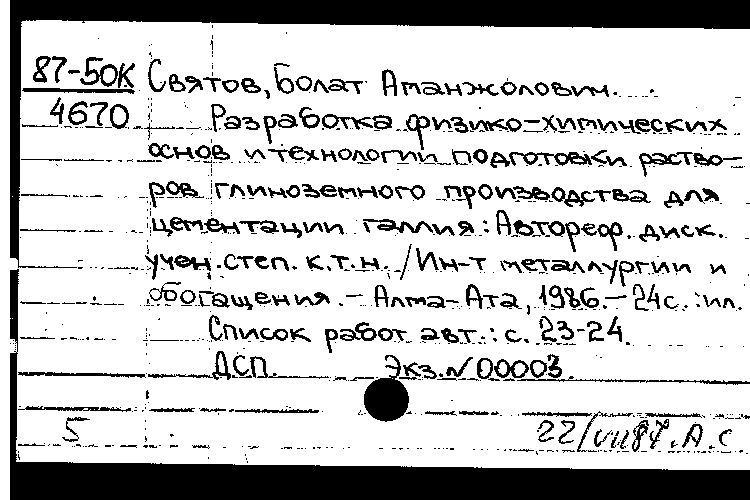 87-50К Святов, Болат Аманжолович.
4670 Разработка физико-химических
основ и технологии подготовки раство-
ров глиноземного производства для
цементации галлия: Автореф. диск.
учен. степ. к.т.н. / Ин-т металлургии и
обогащения. - Алма-Ата, 1986. - 24с. : ил.
Список работ авт.: с. 23-24.
ДСП. Экз. N 00003.
5 22/VII87. А.С.